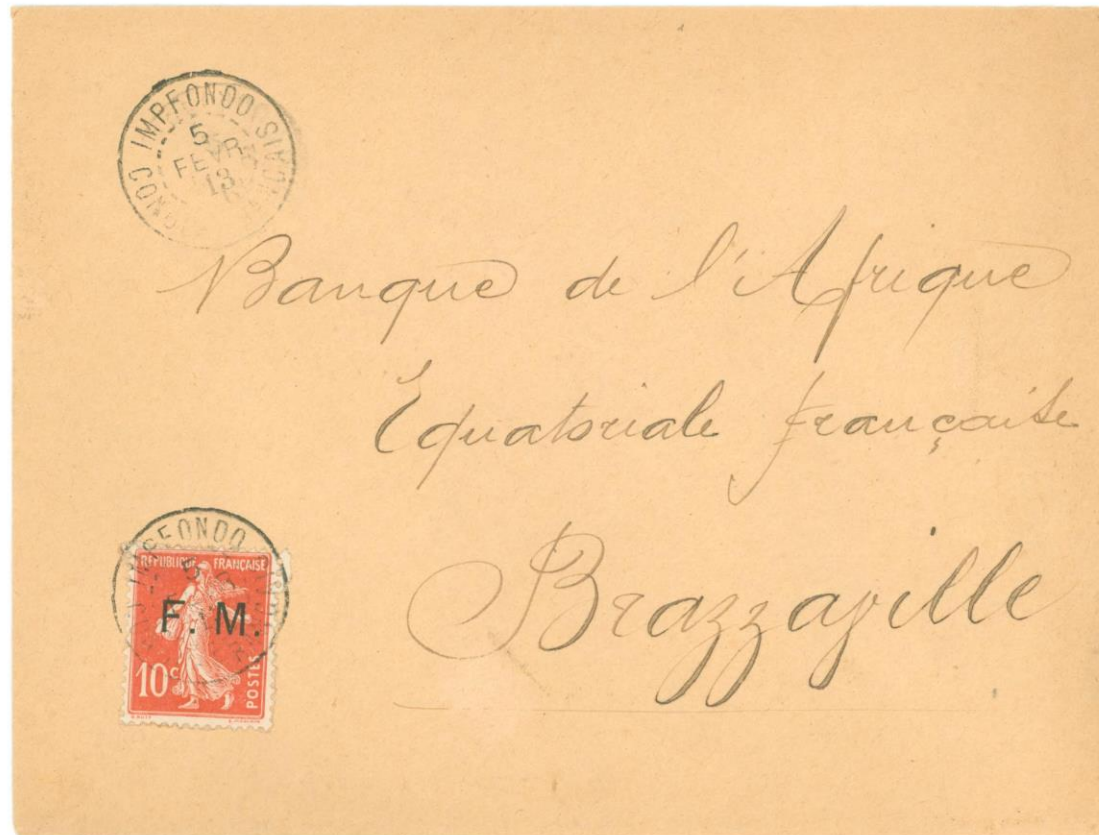 CONGO IMPFONDO FRANÇAIS
5
FEVR
13
Banque de l'Afrique
Equatoriale française
Brazzaville
IMPFONDO
REPUBLIQUE FRANÇAISE
F. M.
10c
POSTES